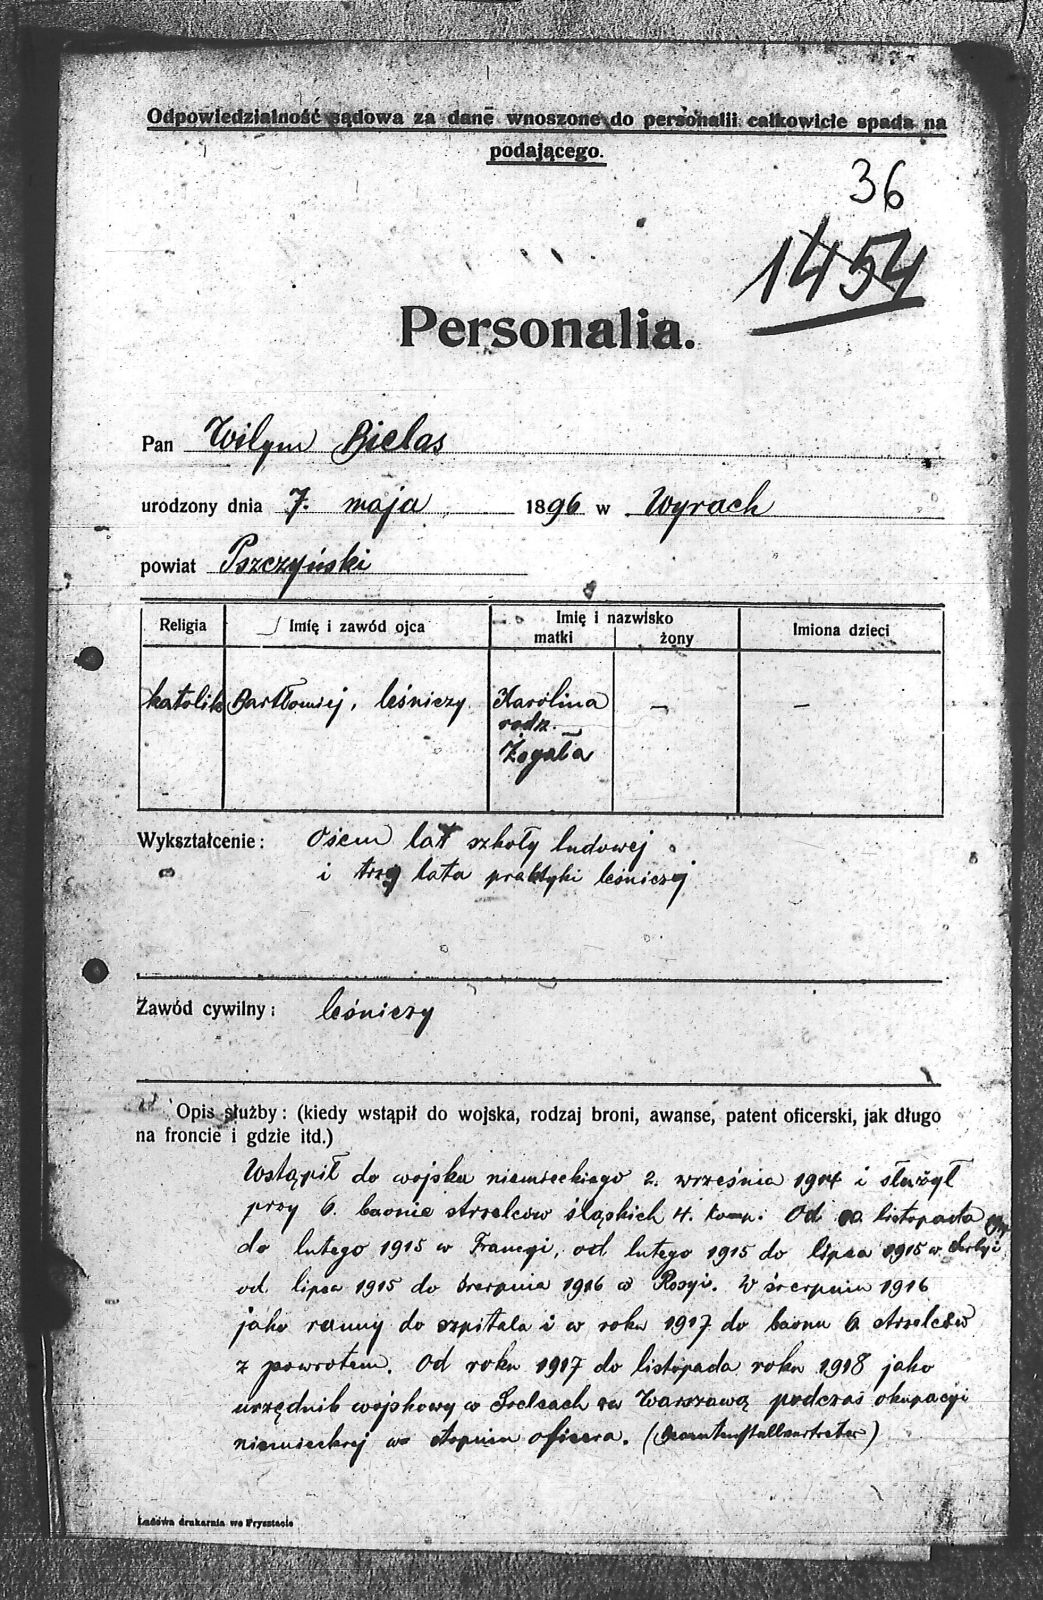 Odpowiedzialność sądowa za dane wnoszone do personalii całkowicie spada na
podającego.
36
1454
Personalia.
Pan Wilym Bielas
urodzony dnia 7. maja 1896 w Wyrach
powiat Pszczyński
Religia Imię i zawód ojca Imię i nazwisko matki żony Imiona dzieci
katolik Bartłomiej, leśniczy Karolina — —
rodz.
Żogała
Wykształcenie: Ośem lat szkoły ludowej
i trzy lata praktyki leśniczej
Zawód cywilny: leśniczy
Opis służby: (kiedy wstąpił do wojska, rodzaj broni, awanse, patent oficerski, jak długo
na froncie i gdzie itd.)
Wstąpił do wojska niemieckiego 2. września 1914 i służył
przy 6. baonie strzelców śląskich 4. komp. Od listopada
do lutego 1915 w Francyi, od lutego 1915 do lipca 1915 w Serbyi
od lipca 1915 do śierpnia 1916 w Rosyi. W śierpniu 1916
jako ranny do szpitala i w roku 1917 do baonu 6. strzelców
z powrotem. Od roku 1917 do listopada roku 1918 jako
urzędnik wojskowy w Warszawą podczas okupacyi
niemieckiej w stopniu oficera. (Beamtenstellvertreter)
Ludowa drukarnia we Frysztacie